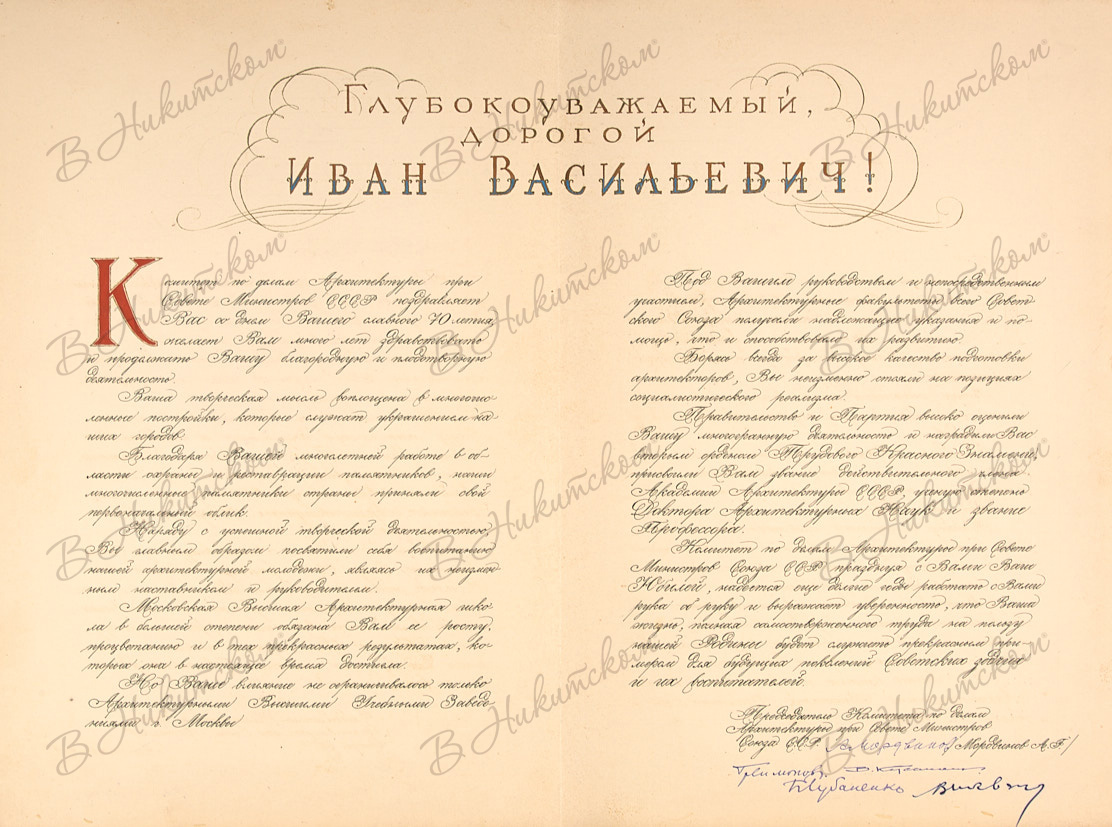 Глубокоуважаемый,
дорогой
Иван Васильевич!
Комитет по делам Архитектуры при
Совете Министров СССР поздравляет
Вас со днем Вашего славного 70 летия,
желает Вам много лет здравствовать
и продолжать Вашу благородную и плодотворную
деятельность.
Ваша творческая мысль воплощена в многочис-
ленные постройки, которые служат украшением на-
ших городов.
Благодаря Вашей многолетней работе в об-
ласти охраны и реставрации памятников, наши
многочисленные памятники страны приняли свой
первоначальный облик.
Наряду с успешной творческой деятельностью,
Вы главным образом посвятили себя воспитанию
нашей архитектурной молодежи, являясь их неизмен-
ным наставником и руководителем.
Московская Высшая Архитектурная шко-
ла в большей степени обязана Вам ее росту,
процветанию и в тех прекрасных результатах, ко-
торых она в настоящее время достигла.
Но Ваше влияние не ограничивалось только
Архитектурными Высшими Учебными Заведе-
ниями г. Москвы
Под Вашим руководством и непосредственным
участием, Архитектурные факультеты всего Совет-
ского Союза получали надлежащие указания и по-
мощь, что и способствовало их развитию.
Борясь всегда за высокое качество подготовки
архитекторов, Вы неизменно стояли на позициях
социалистического реализма.
Правительство и Партия высоко оценили
Вашу многогранную деятельность и наградили Вас
вторым орденом Трудового Красного Знамени,
присвоили Вам звание действительного члена
Академии Архитектуры СССР, ученую степень
Доктора Архитектурных Наук и звание
Профессора.
Комитет по делам Архитектуры при Совете
Министров Союза ССР празднуя с Вами Ваш
Юбилей, надеется еще долгие годы работать с Вами
рука об руку и выражает уверенность, что Ваша
жизнь, полная самоотверженного труда на пользу
нашей Родины будет служить прекрасным при-
мером для будущих поколений Советских зодчих
и их воспитателей.
Председатель Комитета по делам
Архитектуры при Совете Министров
Союза ССР Мордвинов А.Г./
В. Никитском®